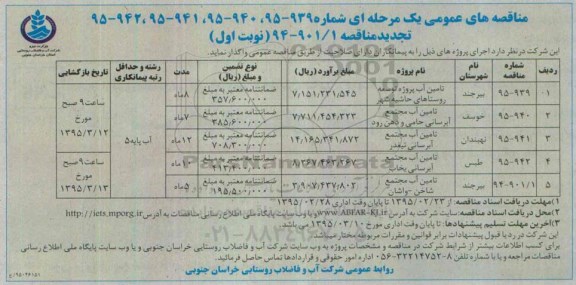 مناقصه های عمومی یک مرحله ای شماره ۹۳۹-۹۵، ۹۴۰-۹۵، ۹۴۱-۹۵، ۹۴۲-۹۵
تجدیدمناقصه ۹۰۱/۱-۹۴ (نوبت اول)
این شرکت درنظر دارد اجرای پروژه های ذیل را به پیمانکاران دارای صلاحیت از طریق مناقصه عمومی واگذار نماید.
ردیف شماره مناقصه نام شهرستان نام پروژه مبلغ برآورد (ریال) نوع تضمین و مبلغ (ریال) مدت رشته و حداقل رتبه پیمانکاری تاریخ بازگشایی
۱ ۹۳۹-۹۵ بیرجند تامین آب پروژه توسعه روستاهای حاشیه شهر ۷/۱۵۱/۲۳۱/۵۴۵ ضمانتنامه معتبر به مبلغ ۳۵۷/۶۰۰/۰۰۰ ۸ماه آب پایه۵ ساعت ۹ صبح مورخ ۱۳۹۵/۳/۱۲
۲ ۹۴۰-۹۵ خوسف تامین آب مجتمع آبرسانی حامی و دهن رود ۷/۷۱۱/۴۵۴/۳۲۳ ضمانتنامه معتبر به مبلغ ۳۸۵/۶۰۰/۰۰۰ ۷ماه
۳ ۹۴۱-۹۵ نهبندان تامین آب مجتمع آبرسانی نیغدر ۱۴/۱۶۵/۳۴۱/۸۷۲ ضمانتنامه معتبر به مبلغ ۷۰۸/۳۰۰/۰۰۰ ۱۲ماه
۴ ۹۴۲-۹۵ طبس تامین آب مجتمع آبرسانی ضمانتنامه معتبر به مبلغ ۱۰ماه ساعت ۹ صبح مورخ ۱۳۹۵/۳/۱۳
۵ ۹۰۱/۱-۹۴ بیرجند تامین آب مجتمع شاخن -واشان ۳/۹۰۷/۴۳۷/۸۰۲ ضمانتنامه معتبر به مبلغ ۱۹۵/۵۰۰/۰۰۰ ۵ماه
۱) مهلت دریافت اسناد مناقصه: از ۱۳۹۵/۰۲/۲۳ تا پایان وقت اداری ۱۳۹۵/۰۲/۲۸
۲) محل دریافت اسناد مناقصه: سایت شرکت به آدرس www.ABFAR-KJ.ir و یا وب سایت پایگاه ملی اطلاع رسانی مناقصات به آدرس http://iets.mporg.ir
۳) آخرین مهلت تسلیم پیشنهادها: تا پایان وقت اداری مورخ ۱۳۹۵/۰۳/۱۰ می باشد.
این شرکت در رد یا قبول پیشنهادات برابر قوانین و مقررات مربوطه مختار میباشد.
برای کسب اطلاعات بیشتر از شرایط شرکت در مناقصه و مشخصات پروژه به وب سایت شرکت آب و فاضلاب روستایی خراسان جنوبی و یا وب سایت پایگاه ملی اطلاع رسانی مناقصات مراجعه و یا با شماره تلفن ۸-۳۲۲۱۴۷۵۲-۰۵۶ اداره امور حقوقی و قراردادها تماس حاصل فرمائید.
روابط عمومی شرکت آب و فاضلاب روستایی خراسان جنوبی